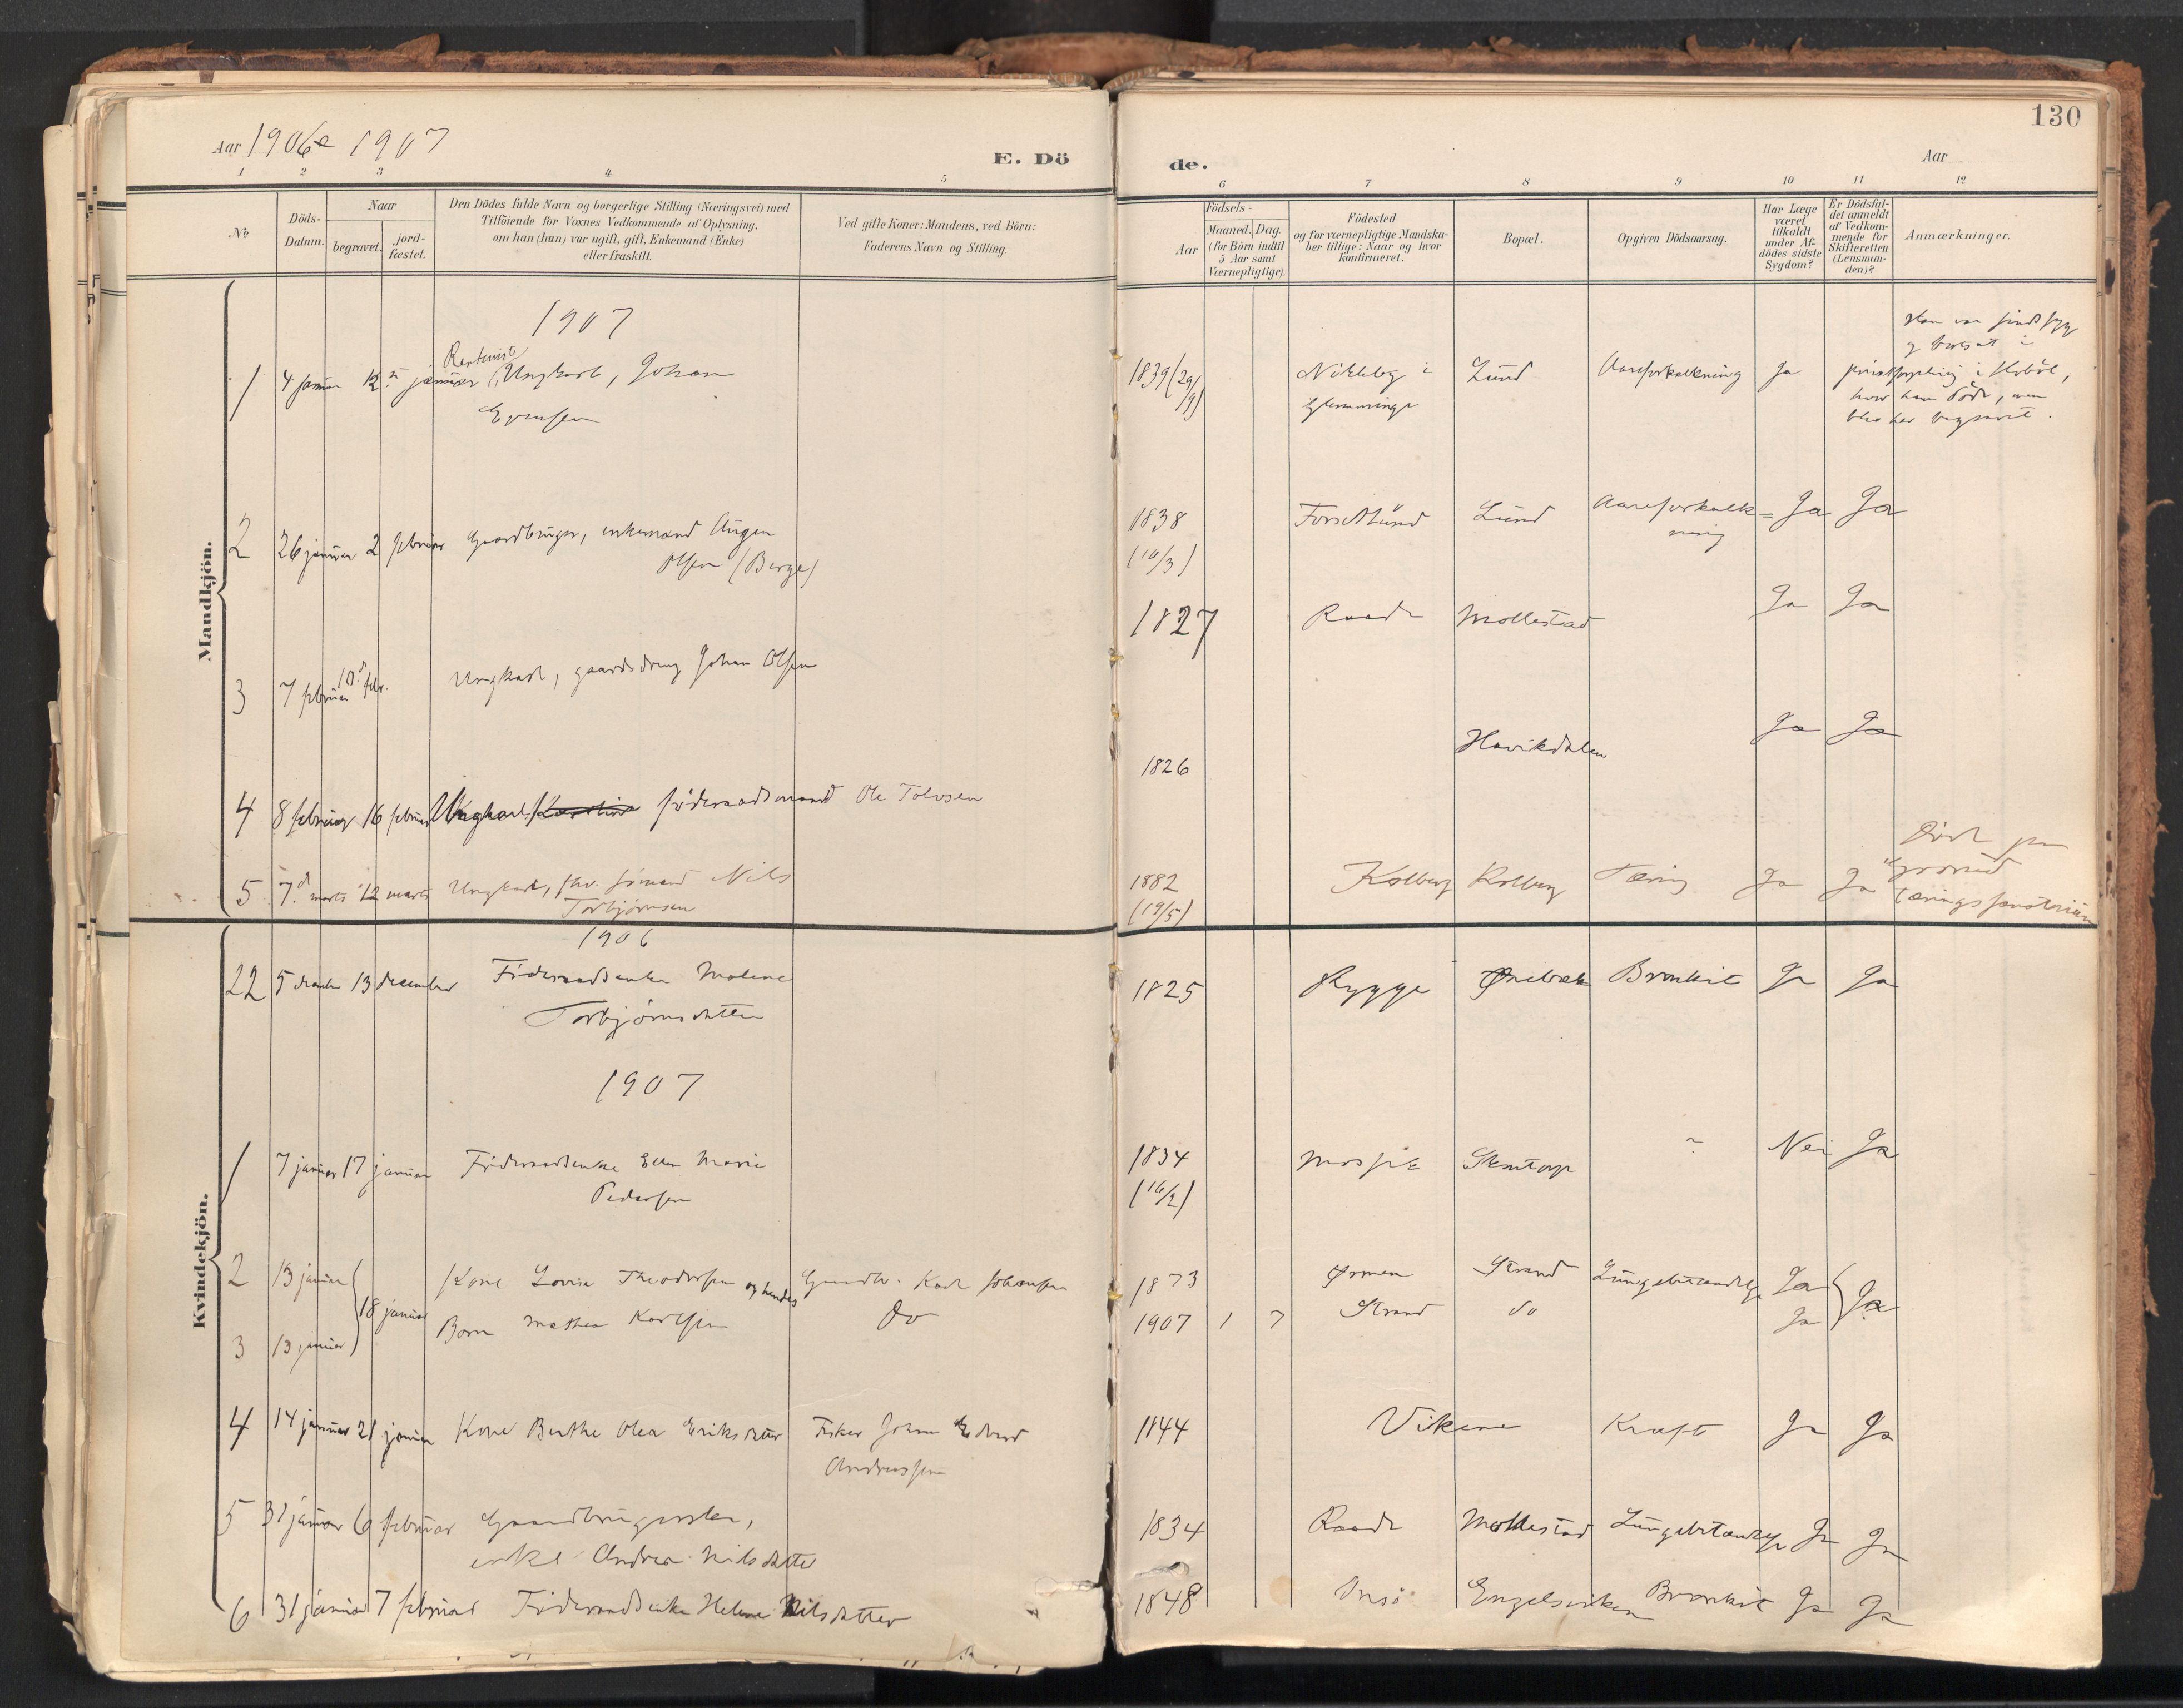 130
Aar 1906 e 1907
E. Dö
de.
Aar
1 2 3 4 5 6 7 8 9 10 11 12
№
Döds-
Datum.
Naar
begravet.
jord-
fæstet.
Den Dödes fulde Navn og borgerlige Stilling (Næringsvei) med
Tilföiende for Voxnes Vedkommende af Oplysning,
om han (hun) var ugift, gift, Enkemand (Enke)
eller fraskilt.
Ved gifte Koner: Mandens, ved Börn:
Faderens Navn og Stilling.
Födsels-
Aar
Maaned. Dag.
(for Börn indtil
5 Aar samt
Værnepligtige).
Födested
og for værnepligtige Mandska-
ber tillige: Naar og hvor
konfirmeret.
Bopæl.
Opgiven Dödsaarsag.
Har Læge
været
tilkaldt
under Af-
dödes sidste
Sygdom?
Er Dödsfal-
det anmeldt
af Vedkom-
mende for
Skifteretten
(Lensman-
den)?
Anmærkninger.
Mandkjön.
1907
Han var sindssyg
og bortsat i
1 4 januar 12 januar Ungkarl, Johan 1839 (29/9) i Lund Aareforkalkning Ja i Hobøl,
hvor han døde, men
blev her begravet.
2 26 januar 2 februar Gaardbruger, enkemand August 1838 Lund Aareforkalk= Ja Ja
Olsen (Berge) (10/3) ning
3 7 februar 10d febr. Ungkarl, gaardsdreng Johan Olsen 1827 Raade Mollestad Ja Ja
4 8 februar 16 februar Ungkarl föderaadsmand Ole Tolvsen 1826 Haavikdalen Ja Ja
5 7d marts 12 marts Ungkarl, fhv. sømand Nils 1882 Kolberg Kolberg Tæring Ja Ja Död paa
Torbjørnsen (19/5) Grorud
tæringssanatorium
Kvindekjön.
1906
22 5 december 13 december Föderaadsenke Malene 1825 Rygge Ørebæk Bronkit Ja Ja
Torbjörnsdatter
1907
1 7 januar 17 januar Föderaadsenke Ellen Marie 1834 Skovtorp ? Nei Ja
Pedersen (16/2)
2 13 januar 18 januar Kone Lovise Theodorsen og hendes Gaardbr. Karl Johansen 1873 Ørmen Strand Lungebetændelse Ja Ja
3 13 januar Barn Mathea Karlsen Do 1907 1 7 Strand do Ja
4 14 januar 21 januar Kone Berthe Olea Eriksdatter Fisker Johan Edvard 1844 Vikene Kræft Ja Ja
Andreassen
5 31 januar 6 februar Gaardbrugerske, 1834 Raade Mollestad Lungebetændelse Ja Ja
enke Andrea Nilsdatter
6 31 januar 7 februar Föderaadsenke Helene Nilsdatter 1848 Onsö Engelsviken Bronkit Ja Ja